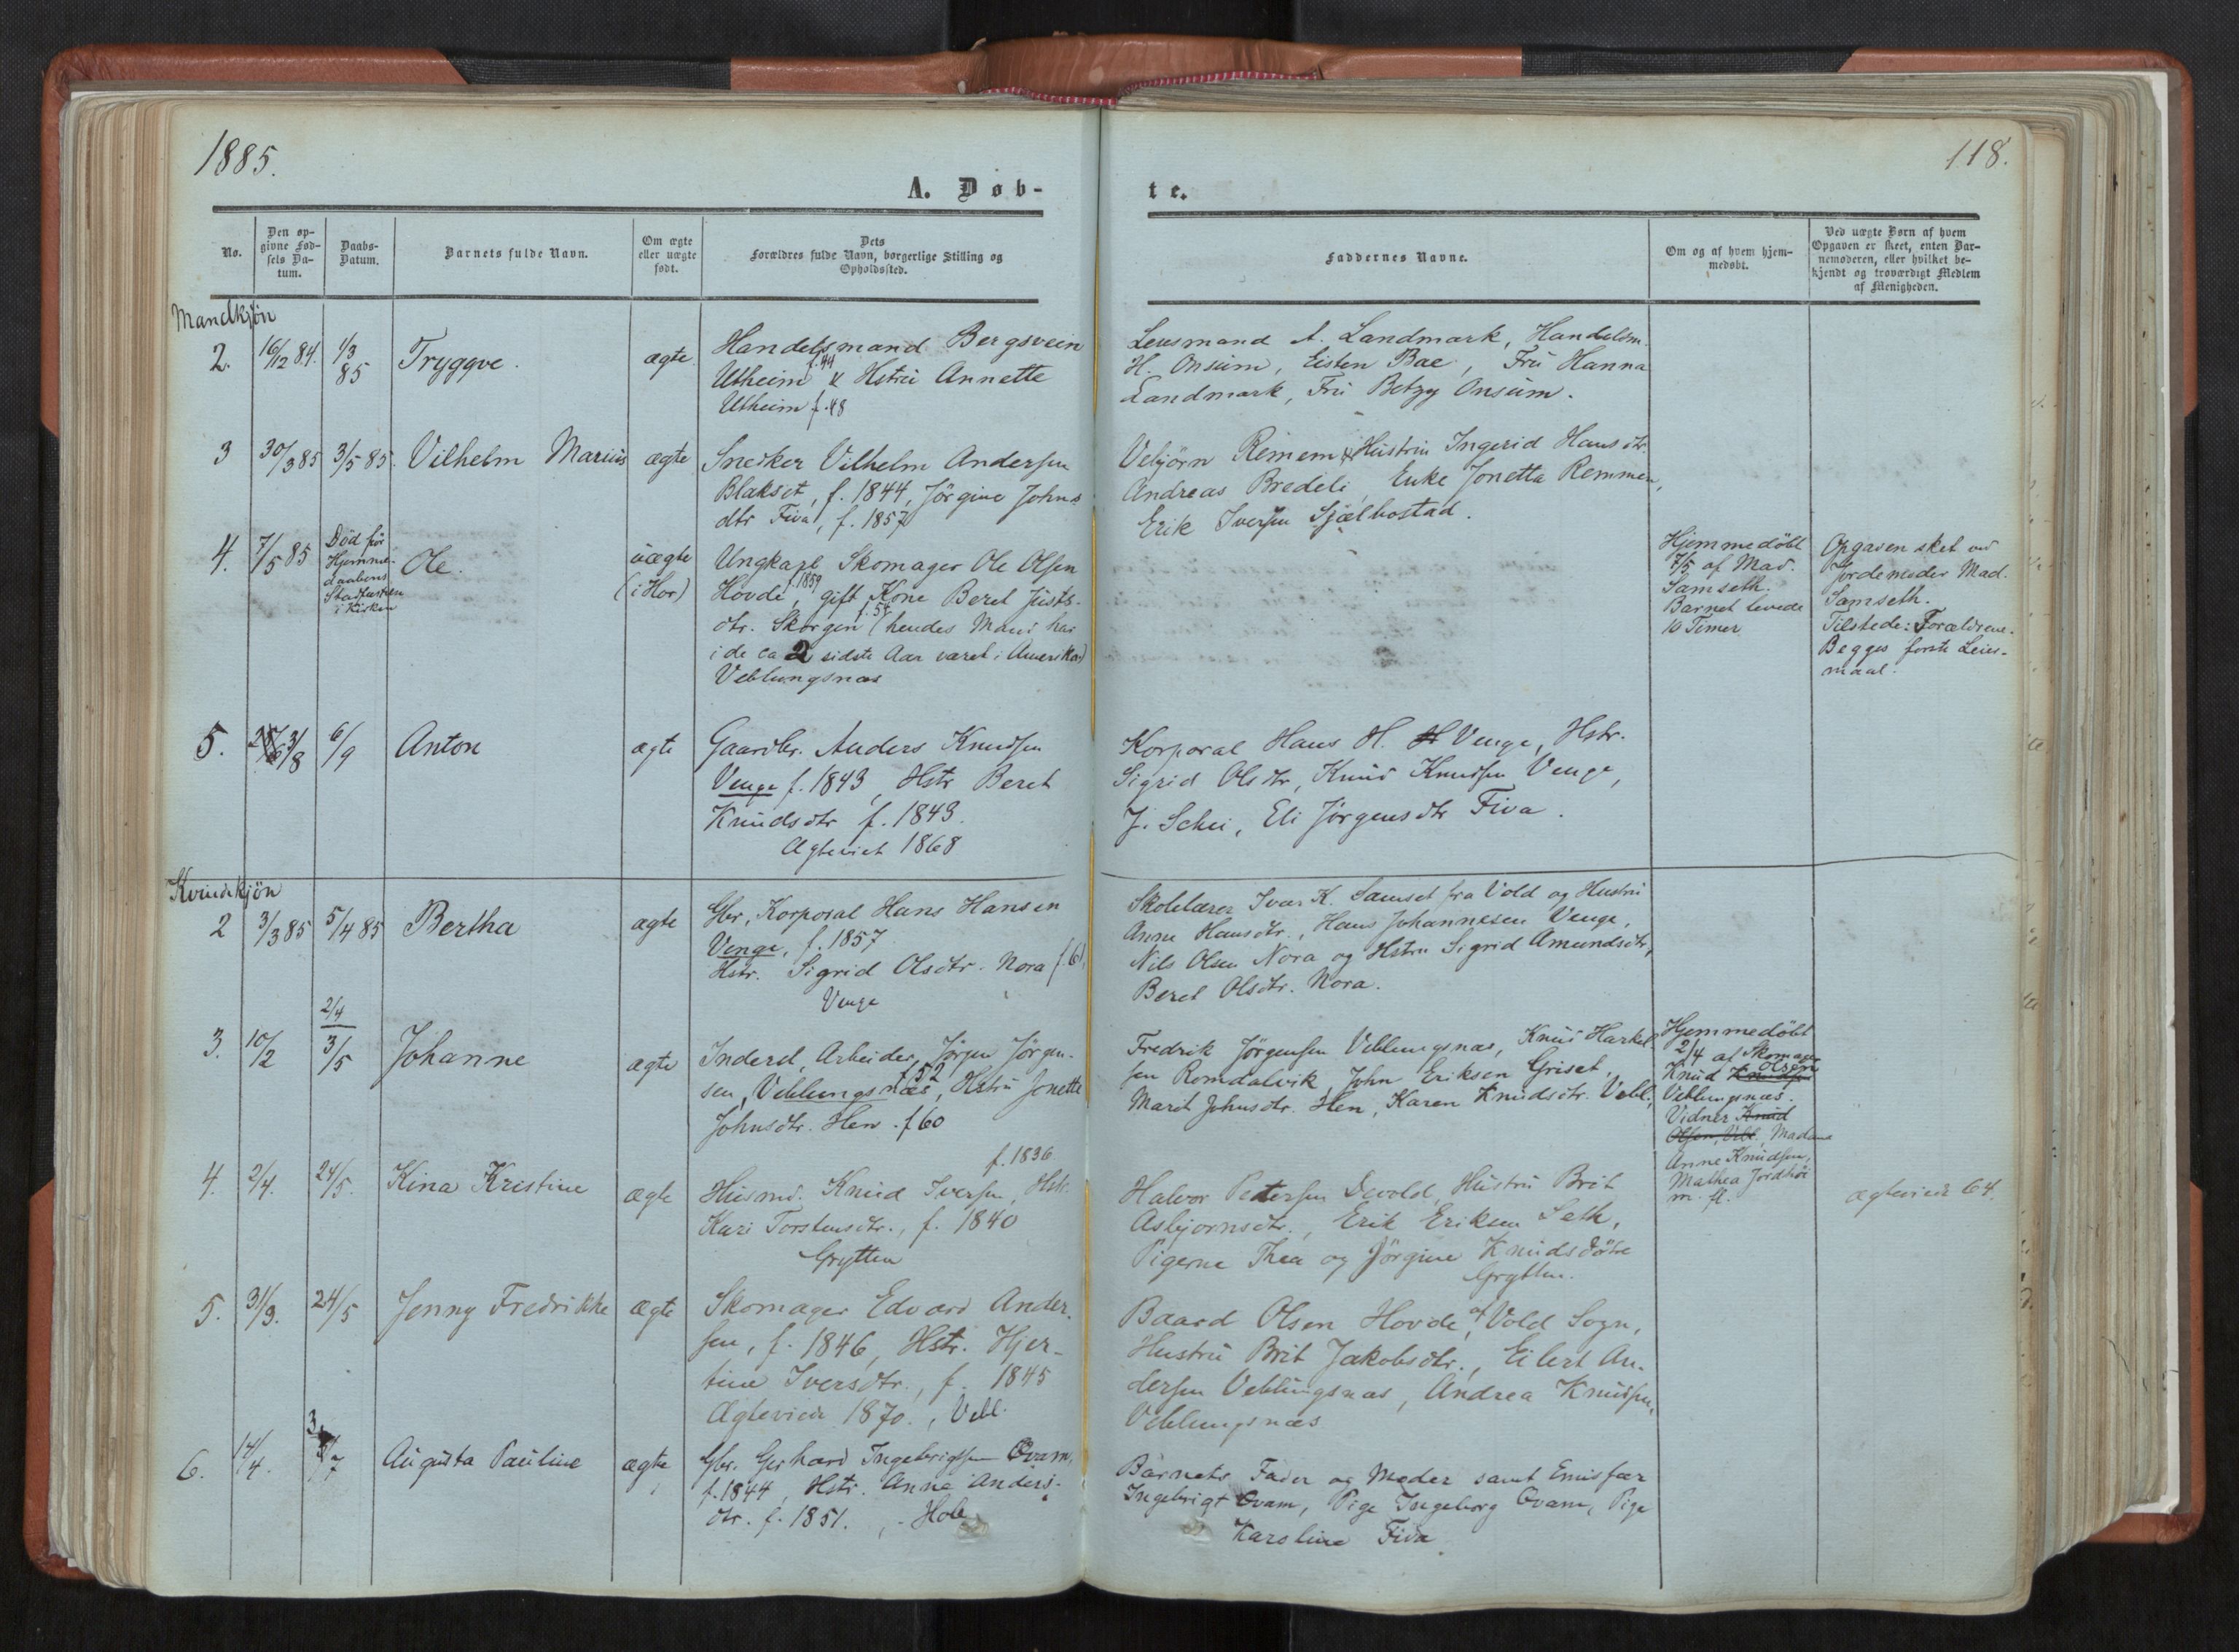 1885.
118.
A. Døb-
te.
No.
Den op-
givne Fød-
sels Da-
tum.
Daabs-
Datum.
Barnets fulde Navn.
Om ægte
eller uægte
født.
Dets
Forældres fulde Navn, borgerlige Stilling og
Opholdssted.
Faddernes Navne.
Om og af hvem hjem-
medøbt.
Ved uægte Børn af hvem
Opgaven er skeet, enten Bar-
nemoderen, eller hvilket be-
kjendt og troværdigt Medlem
af Menigheden.
Mandkjön
2. 16/12 84. 1/3 85 Tryggve. ægte
Handelsmand Bergsvein
Utheim f. 44 & Hstru Annette
Utheim f. 48
Lensmand A. Landmark, Handelsm.
H. Onsum, Eisten Bae, Fru Hanna
Landmark, Fru Betzy Onsum.
3 30/3 85 3/5 85. Vilhelm Marius ægte
Snedker Vilhelm Andersen
Blakset, f. 1844, Jörgine Johns
dtr Fiva, f. 1857
Vebjörn Remem & Hustru Ingerid Hansdtr.
Andreas Bredeli, Enke Jonetta Remmem,
Erik Iversen Sjælbostad.
4. 7/5 85
Död för
Hjemme-
daabens
Stadfæstelsen
i Kirken
Ole.
uægte
(i Hor)
Ungkarl Skomager Ole Olsen
Hovde f. 1859, gift Kone Beret Justs-
dtr. Skorgen f. 54 (hendes Mand har
i de ca 2 sidste Aar været i Amerika)
Veblungsnæs
Hjemmedöbt
7/5 af Mad.
Samseth.
Barnet levede
10 Timer
Opgaven sket ved
Jordemoder Mad.
Samseth.
Tilstede: Forældrene.
Begges förste Leier-
maal.
5. 3/8 6/9 Anton ægte
Gaardbr. Anders Knudsen
Venge f. 1843, Hstr Beret
Knudsdtr f. 1843.
Ægteviet 1868
Korporal Hans H. Venge, Hstr.
Sigrid Olsdtr, Knud Knudsen Venge,
J. Schei, Eli Jörgensdtr Fiva.
Kvindekjön
2 3/3 85 5/4 85 Bertha ægte
Gbr, Korporal Hans Hansen
Venge, f. 1857
Hstr. Sigrid Olsdtr. Nora f. 61,
Venge
Skolelærer Ivar K. Samset fra Vold og Hustru
Anne Hansdtr., Hans Johannesen Venge,
Nils Olsen Nora og Hstru Sigrid Amundsdtr,
Beret Olsdtr. Nora.
3. 10/2 2/4 3/5 Johanne ægte
Inderst, Arbeider, Jörgen Jörgen-
sen, Veblungsnæs f. 52, Hstru Jonette
Johnsdtr. Hen. f 60
Fredrik Jörgensen Veblungsnæs, Knud Harkel-
sen Romdalvik, John Eriksen Griset,
Marit Johnsdtr. Hen, Karen Knudsdtr. Vebl.,
Hjemmedöbt
2/4 af Skomager
Knud Knudsen Olsen
Veblungsnæs.
Vidner Knud
Olsen, Vebl. Madame
Anne Knudsen,
Mathea Jordhöi
m. fl.
4. 2/4. 24/5. Kina Kristine ægte
f. 1836
Husmd. Knud Iversen, Hstr.
Kari Torstensdtr., f. 1840
Grytten
Halvor Petersen Devold, Hustru Brit
Asbjornsdtr., Erik Eriksen Seth,
Pigerne Thea og Jörgine Knudsdötre
Grytten.
ægteviede 64.
5. 31/3. 24/5 Jenny Fredrikke ægte
Skomager Edvard Ander-
sen, f. 1846, Hstr. Hjer-
tine Iversdtr., f. 1845
Ægteviede 1870., Vebl.
Baard Olsen Hovde, af Vold Sogn,
Hustru Brit Jakobsdtr., Eilert An-
dersen Veblungsnæs, Andrea Knudsen,
Veblungsnæs
6. 14/4. 3/7 Augusta Pauline ægte
Gbr. Gerhard Ingebrigtsen Qvam,
f. 1844, Hstr. Anne Anders-
dtr. f. 1851., - Hole
Barnets Fader og Moder samt Emisfær
Ingebrigt Qvam, Pige Ingeborg Qvam, Pige
Karoline Fiva